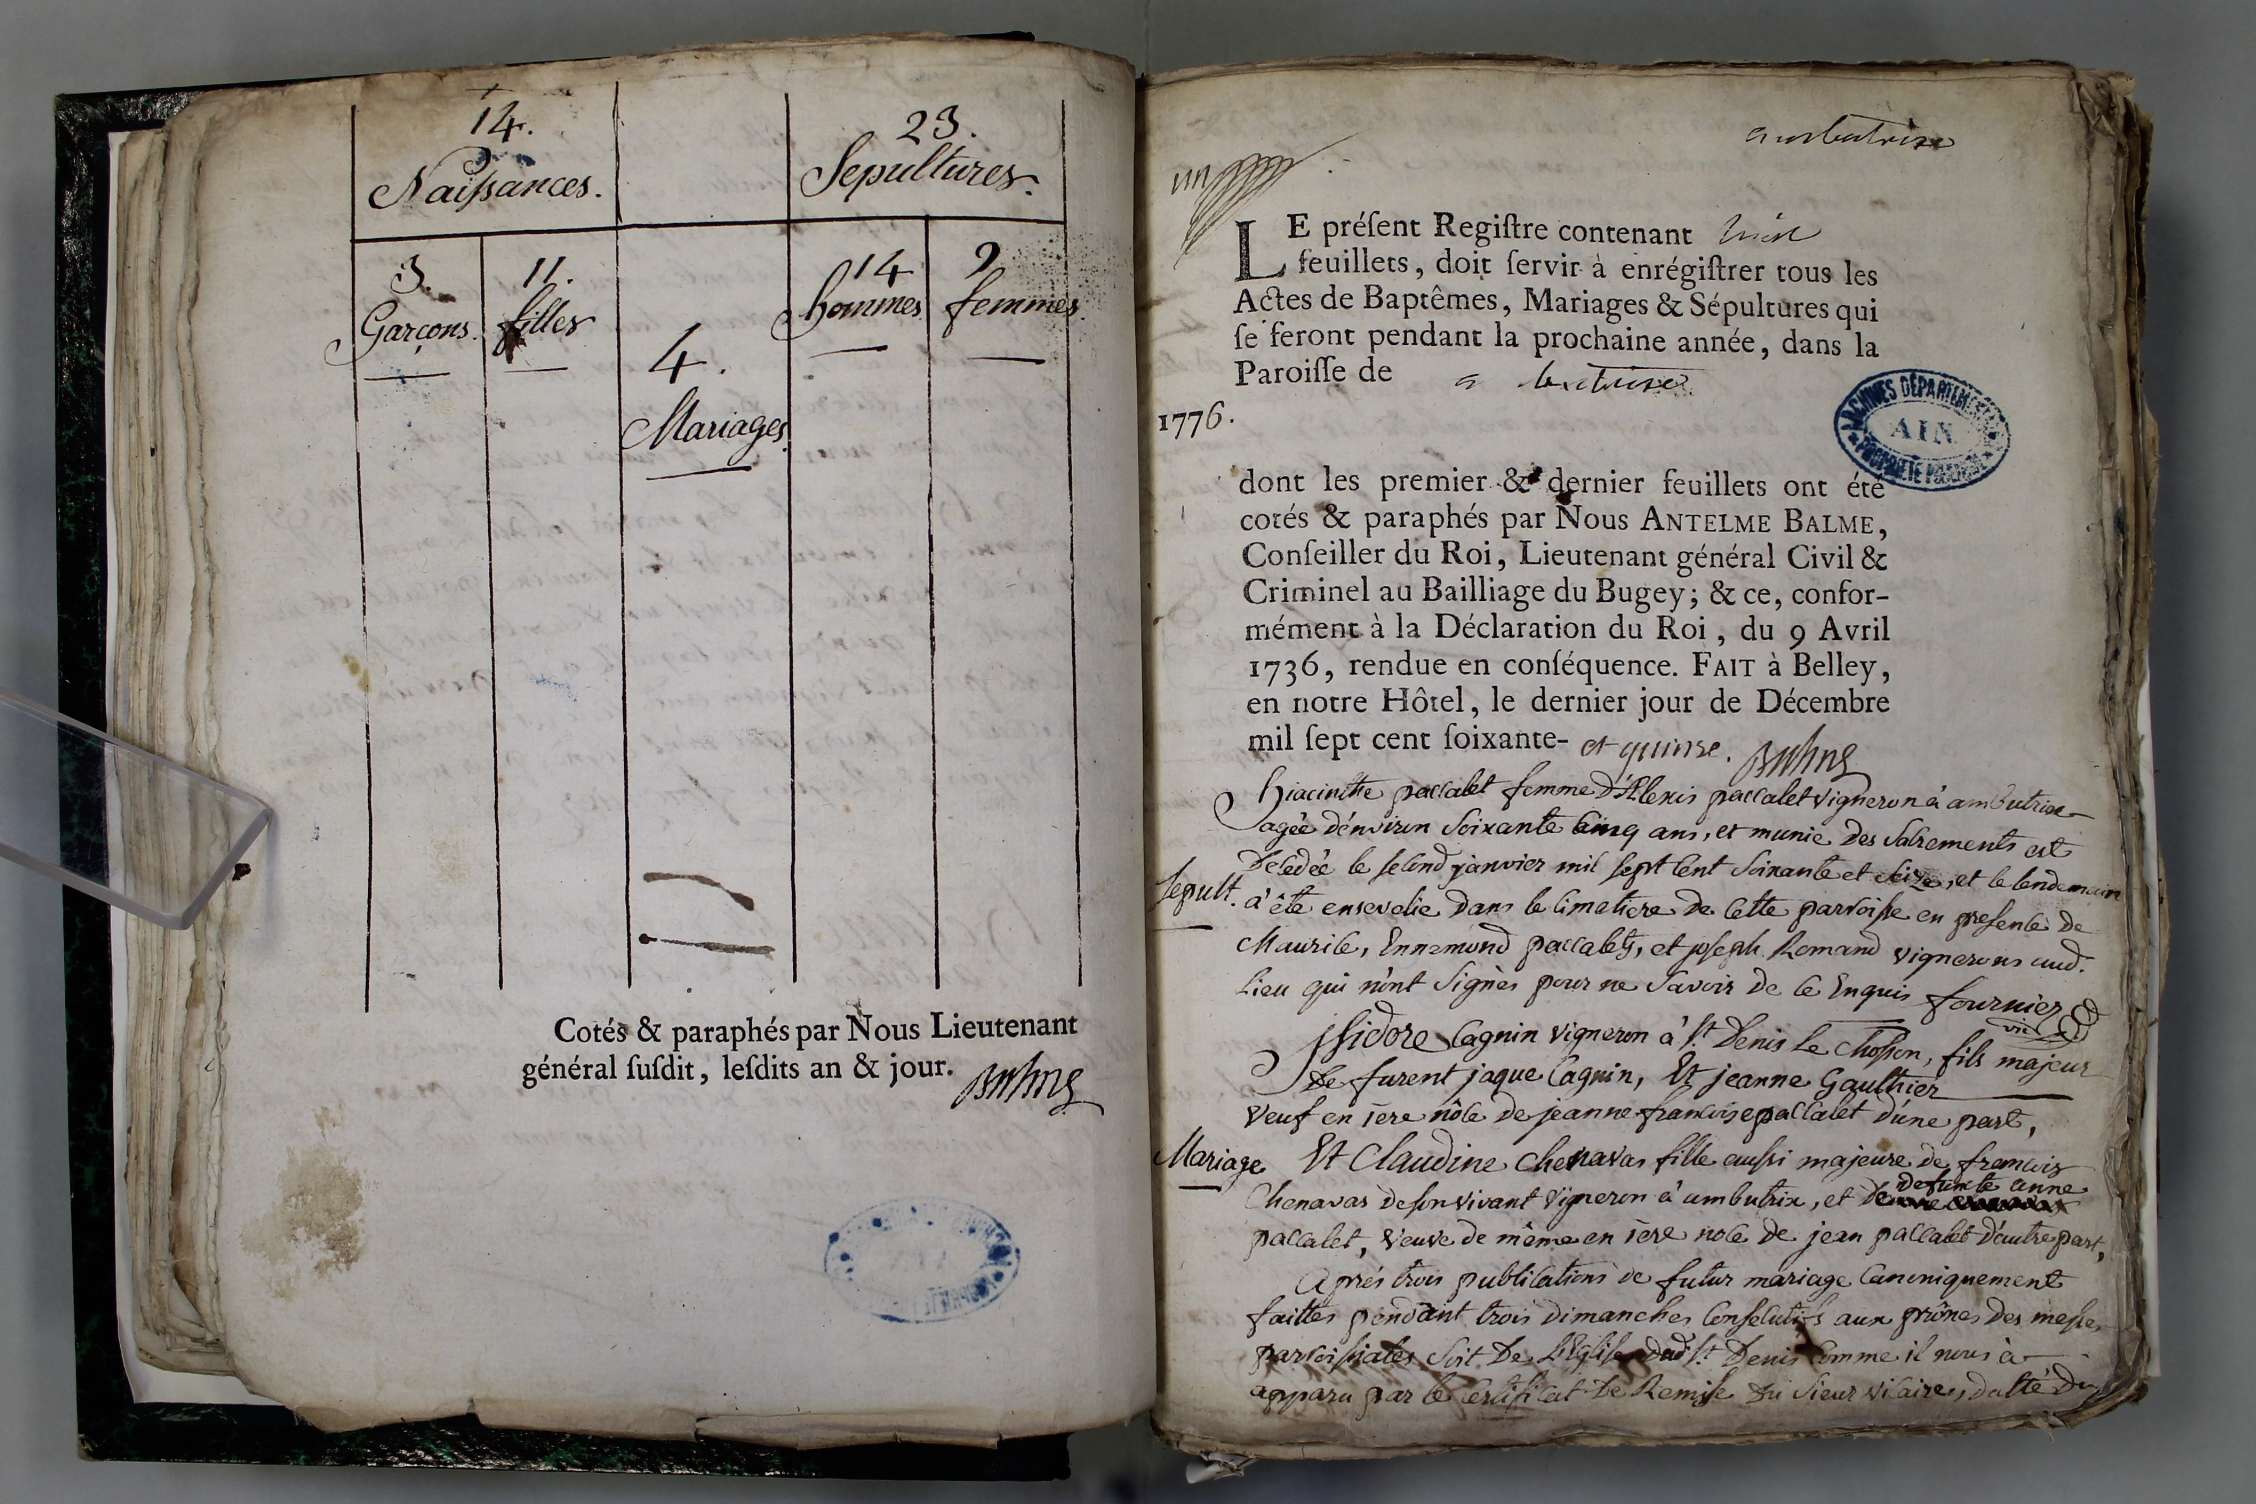 14.
Naissances.
23.
Sepultures.
3.
Garçons.
11.
filles
4.
Mariages.
14
hommes
9
femmes.
Cotés & paraphés par Nous Lieutenant
général ſuſdit, leſdits an & jour.
ambutrix
un
LE préſent Regiſtre contenant huit
feuillets, doit ſervir à enrégiſtrer tous les
Actes de Baptêmes, Mariages & Sépultures qui
ſe feront pendant la prochaine année, dans la
Paroiſſe de ambutrix
1776.
ARCHIVES DÉPARTEMENTALES
AIN
PROPRIÉTÉ PUBLIQUE
dont les premier & dernier feuillets ont été
cotés & paraphés par Nous ANTELME BALME,
Conſeiller du Roi, Lieutenant général Civil &
Criminel au Bailliage du Bugey; & ce, confor-
mément à la Déclaration du Roi, du 9 Avril
1736, rendue en conſéquence. FAIT à Belley,
en notre Hôtel, le dernier jour de Décembre
mil ſept cent ſoixante- et quinze.
hiacinthe paccalet femme d'Alexis paccalet vigneron à ambutrix
agée d'environ soixante cinq ans, et munie des sacrements est
decedée le second janvier mil sept cent soixante et seize, et le lendemain
Sepult. a été ensevelie dans le cimetiere de cette parroisse en presence de
Maurice, Ennemond paccalets, et joseph Romand vignerons aud.
lieu qui n'ont signés pour ne savoir de ce enquis fournier
vic
Isidore Cagnin vigneron à St. Denis le Chosson, fils majeur
de furent jaque Cagnin, Et jeanne Gaulthier
veuf en 1ere nôce de jeanne francoise paccalet d'une part,
Mariage Et Claudine Chenavas fille aussi majeure de francois
Chenavas de son vivant vigneron à ambutrix, et de defunte anne
paccalet, veuve de même en 1ere noce de jean paccalet d'autre part,
Après trois publications de futur mariage canoniquement
faittes pendant trois dimanches consecutifs aux prônes des messes
parroissiales soit de l'Eglise dud. St. Denis comme il nous à
apparu par le certificat de Remise du sieur vicaire, datté du